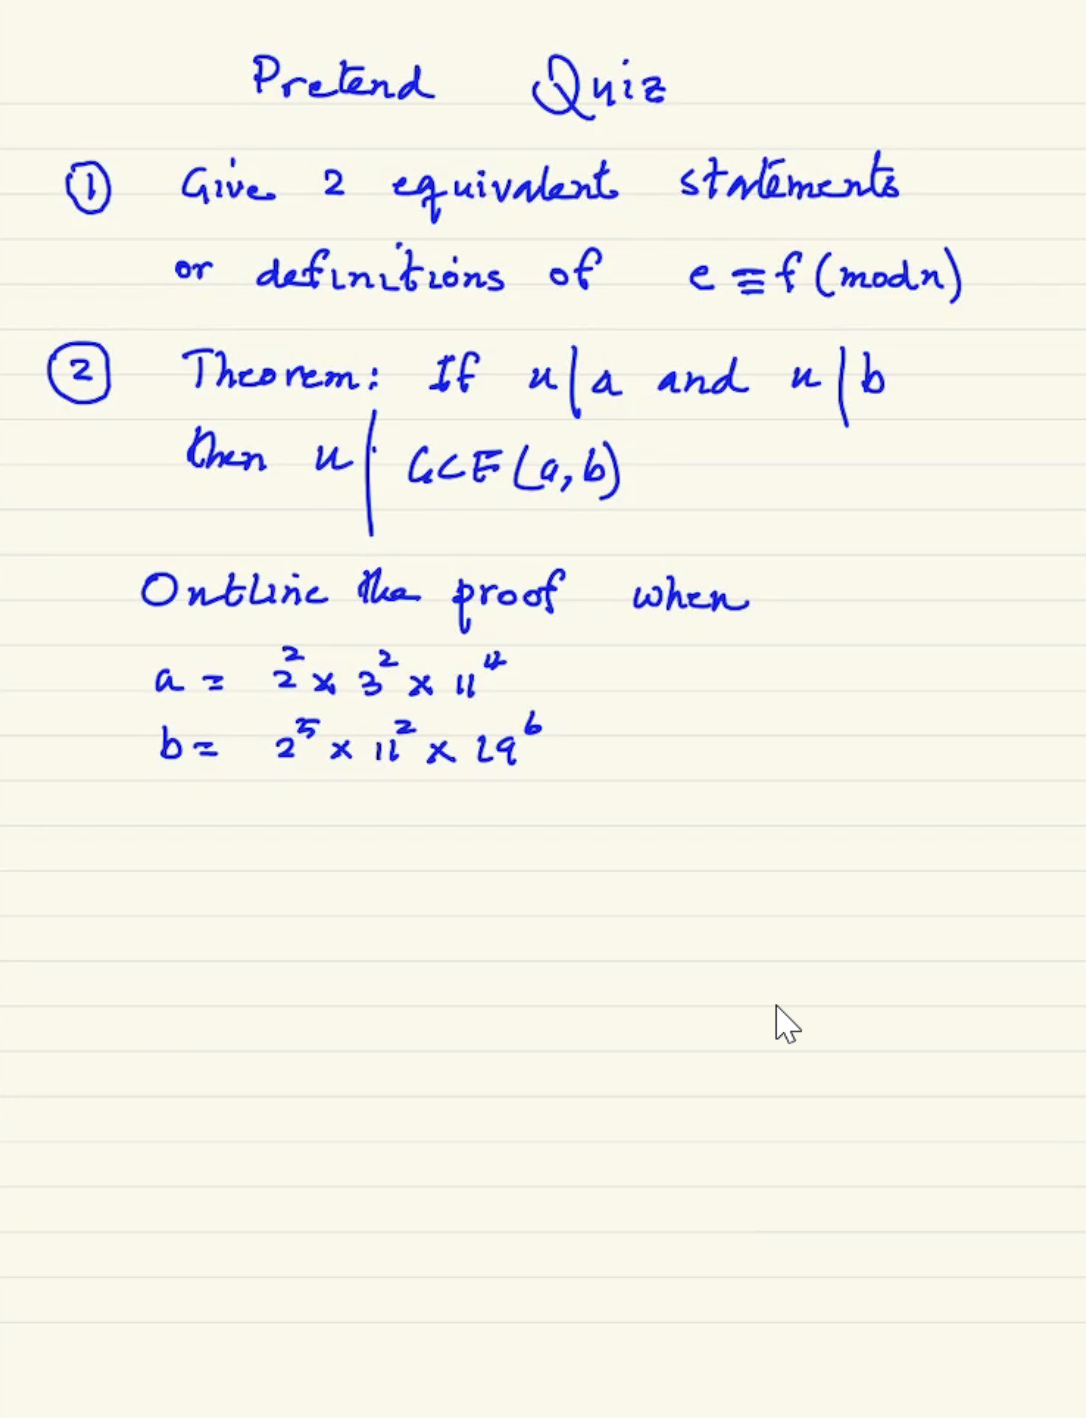 Pretend Quiz
① Give 2 equivalent statements
or definitions of e ≡ f (mod n)
② Theorem: If u | a and u | b
then u | GCF (a, b)
Outline the proof when
a = 2² × 3² × 11⁴
b = 2⁵ × 11² × 29⁶